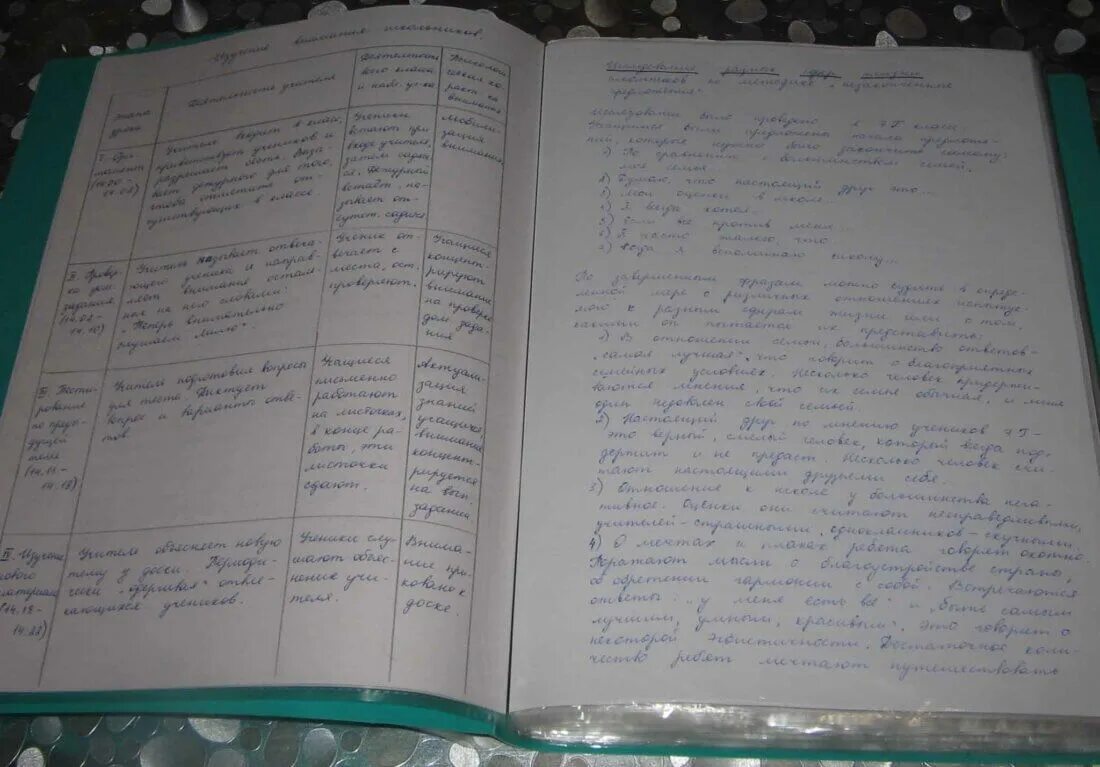 Изучение внимания школьников.
Этапы
урока
Деятельность учителя
Деятельность
всего класса
и наблюд. уч-ка
Психолог
внимания
(14.00-
14.02)
Учитель входит в класс,
приветствует учеников и
разрешает сесть. Вызы-
вает дежурного для того,
чтобы отметить от-
сутствующих в классе.
Ученики
встают при
входе учителя,
затем садят-
ся. Дежурный
встает, на-
зывает от-
сутст. садится
Мобили-
зация
внимания
II. Провер-
ка дом.
задания
(14.02-
14.10)
Учитель называет отвеча-
ющего ученика и направ-
ляет внимание осталь-
ных на него словами:
"Теперь внимательно
слушаем Милю".
Ученик от-
вечает с
места, ост.
проверяют.
Учащиеся
концент-
рируют
внимание
на проверке
дом. зада-
ния
III. Тести-
рование
по преды-
дущей
теме
(14.11-
14.18)
Учитель подготовил вопросы
для теста. Диктует
вопрос и варианты отве-
тов.
Учащиеся
письменно
работают
на листочках,
в конце ра-
боты, эти
листочки
сдают.
Актуали-
зация
знаний
учащихся
внимание
концент-
рируется
на вып.
задания.
IV. Изучение
нового
материала
(14.18-
14.28)
Учитель объясняет новую
тему у доски. Периоди-
чески "одергивая" отвле-
кающихся учеников.
Ученики слу-
шают объяс-
нение учи-
теля.
Внима-
ние при-
ковано к
доске.
Исследование разных сфер жизни
по методике "незаконченные
предложения".
Исследование было проведено в 7 Г классе.
Учащимся были предложены начала предложе-
ний, которые нужно было закончить самому:
1) По сравнению с большинством семей,
моя семья...
2) Думаю, что настоящий друг это...
3) Мои оценки в школе...
4) Я всегда хотел...
5) Если все против меня...
6) Я часто жалею, что...
7) Когда я вспоминаю школу...
По завершенным фразам можно судить в опреде-
ленной мере о различных отношениях испытуе-
мого к разным сферам жизни или о том,
какими он пытается их представить:
1) В отношении семьи, большинство ответов -
"самая лучшая", что говорит о благоприятных
семейных условиях. Несколько человек придержи-
ваются мнения, что их семья обычная, и лишь
один недоволен своей семьей.
2) Настоящий друг по мнению учеников 7 Г -
это верный, смелый человек, который всегда под-
держит и не предаст. Несколько человек счи-
тают настоящими друзьями себя.
3) Отношение к школе у большинства нега-
тивное. Оценки они считают несправедливыми,
учителей - страшными, одноклассников - скучными.
4) О мечтах и планах ребята говорят охотно.
Выражают мысли о благоустройстве страны,
об обретении гармонии с собой. Встречаются
ответы: "у меня есть всё" и "быть самым
лучшим, умным, красивым". Это говорит о
некоторой эгоистичности. Достаточное коли-
чество ребят мечтают путешествовать